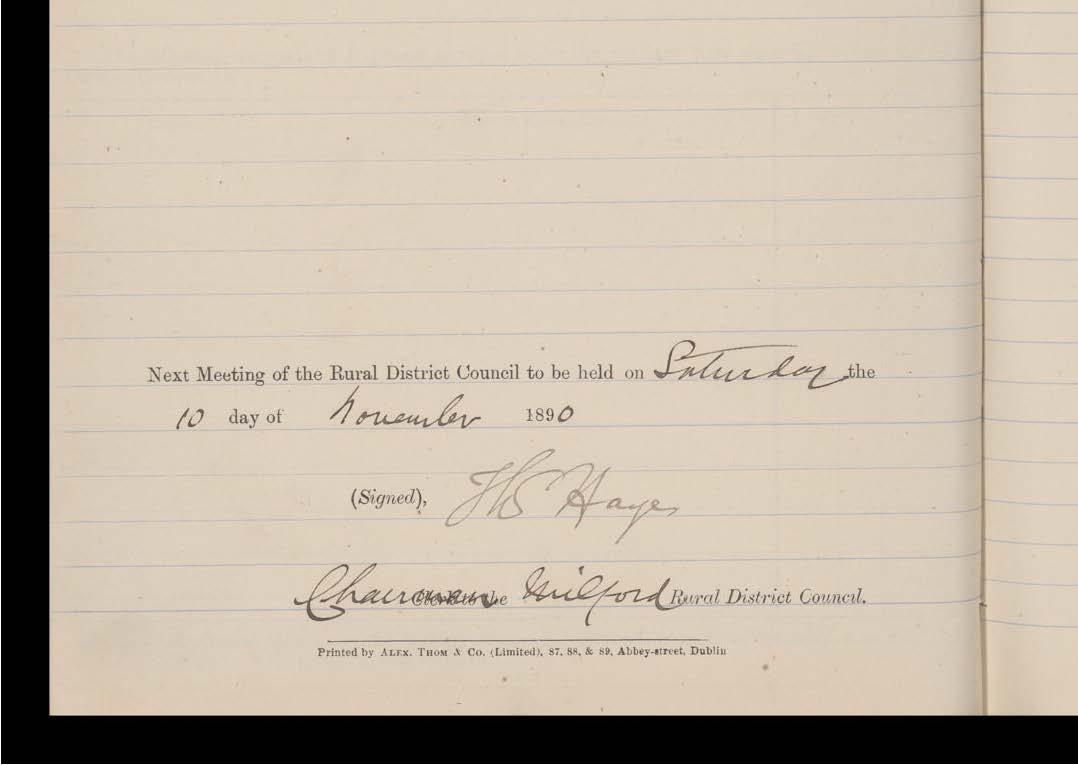 Next Meeting of the Rural District Council to be held on Saturday the
10 day of November 1890
(Signed), HS Hayes
Chairman Clerk to the Milford Rural District Council.
Printed by ALEX. THOM & Co. (Limited), 87, 88, & 89, Abbey-street, Dublin